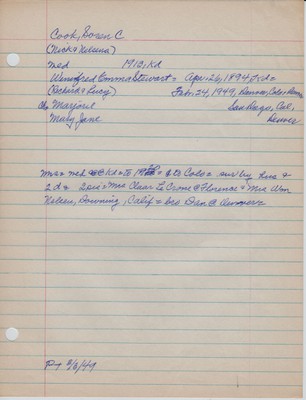 Cook, Soren C.
(Nick & Nelsena)
md 1912, Kd
Winnifred Emma Stewart = Apr. 26, 1894 Kd =
(Richard & Lucy) Feb. 24, 1949, Denver, Colo.,
ch Marjorie San Diego, Cal.
Mary Jane Denver
md Kd = to Colo = sur by hus &
2 d & 2 sis = Mrs Clear La Crone & Florence = Mrs Wm
Nelsen, Downing, Calif = bro Dan @
P-T 3/8/49